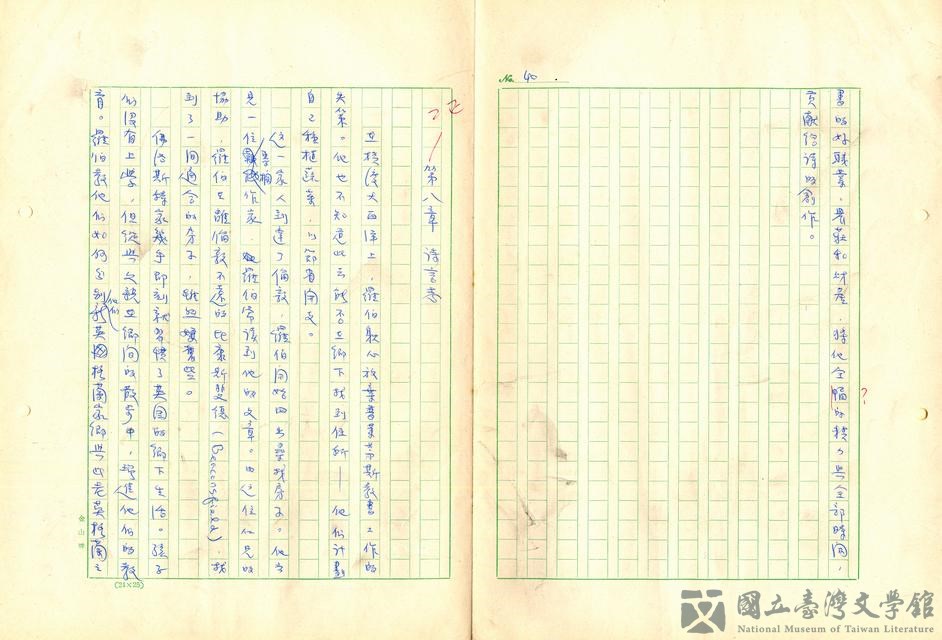 No. 40
書的好職業、農莊和財產,將他全幅的精力與全部時間,
?
貢獻給詩的創作。
第八章 詩言志
在橫渡大西洋上,羅伯耽心放棄普萊茅斯教書工作的
失策。他也不知道此去能否在鄉下找到住所——他們計劃
自己種植蔬菜,以節省開支。
這一家人到達了倫敦,羅伯開始四出尋找房子。他在
見一位專欄作家,羅伯常讀到他的文章。由這位仁兄的
協助,羅伯在離倫敦不遠的比康斯斐德(Beaconsfield),找
到了一間適合的房子,雖然嫌舊些。
佛洛斯特家幾乎即刻就習慣了英國的鄉下生活。孩子
們沒有上學,但從與父親在鄉間的散步中,增進他們的教
育。羅伯教他們如何區別他們新英格蘭家鄉與此老英格蘭之
金山牌
(24×25)
國立臺灣文學館
National Museum of Taiwan Literature